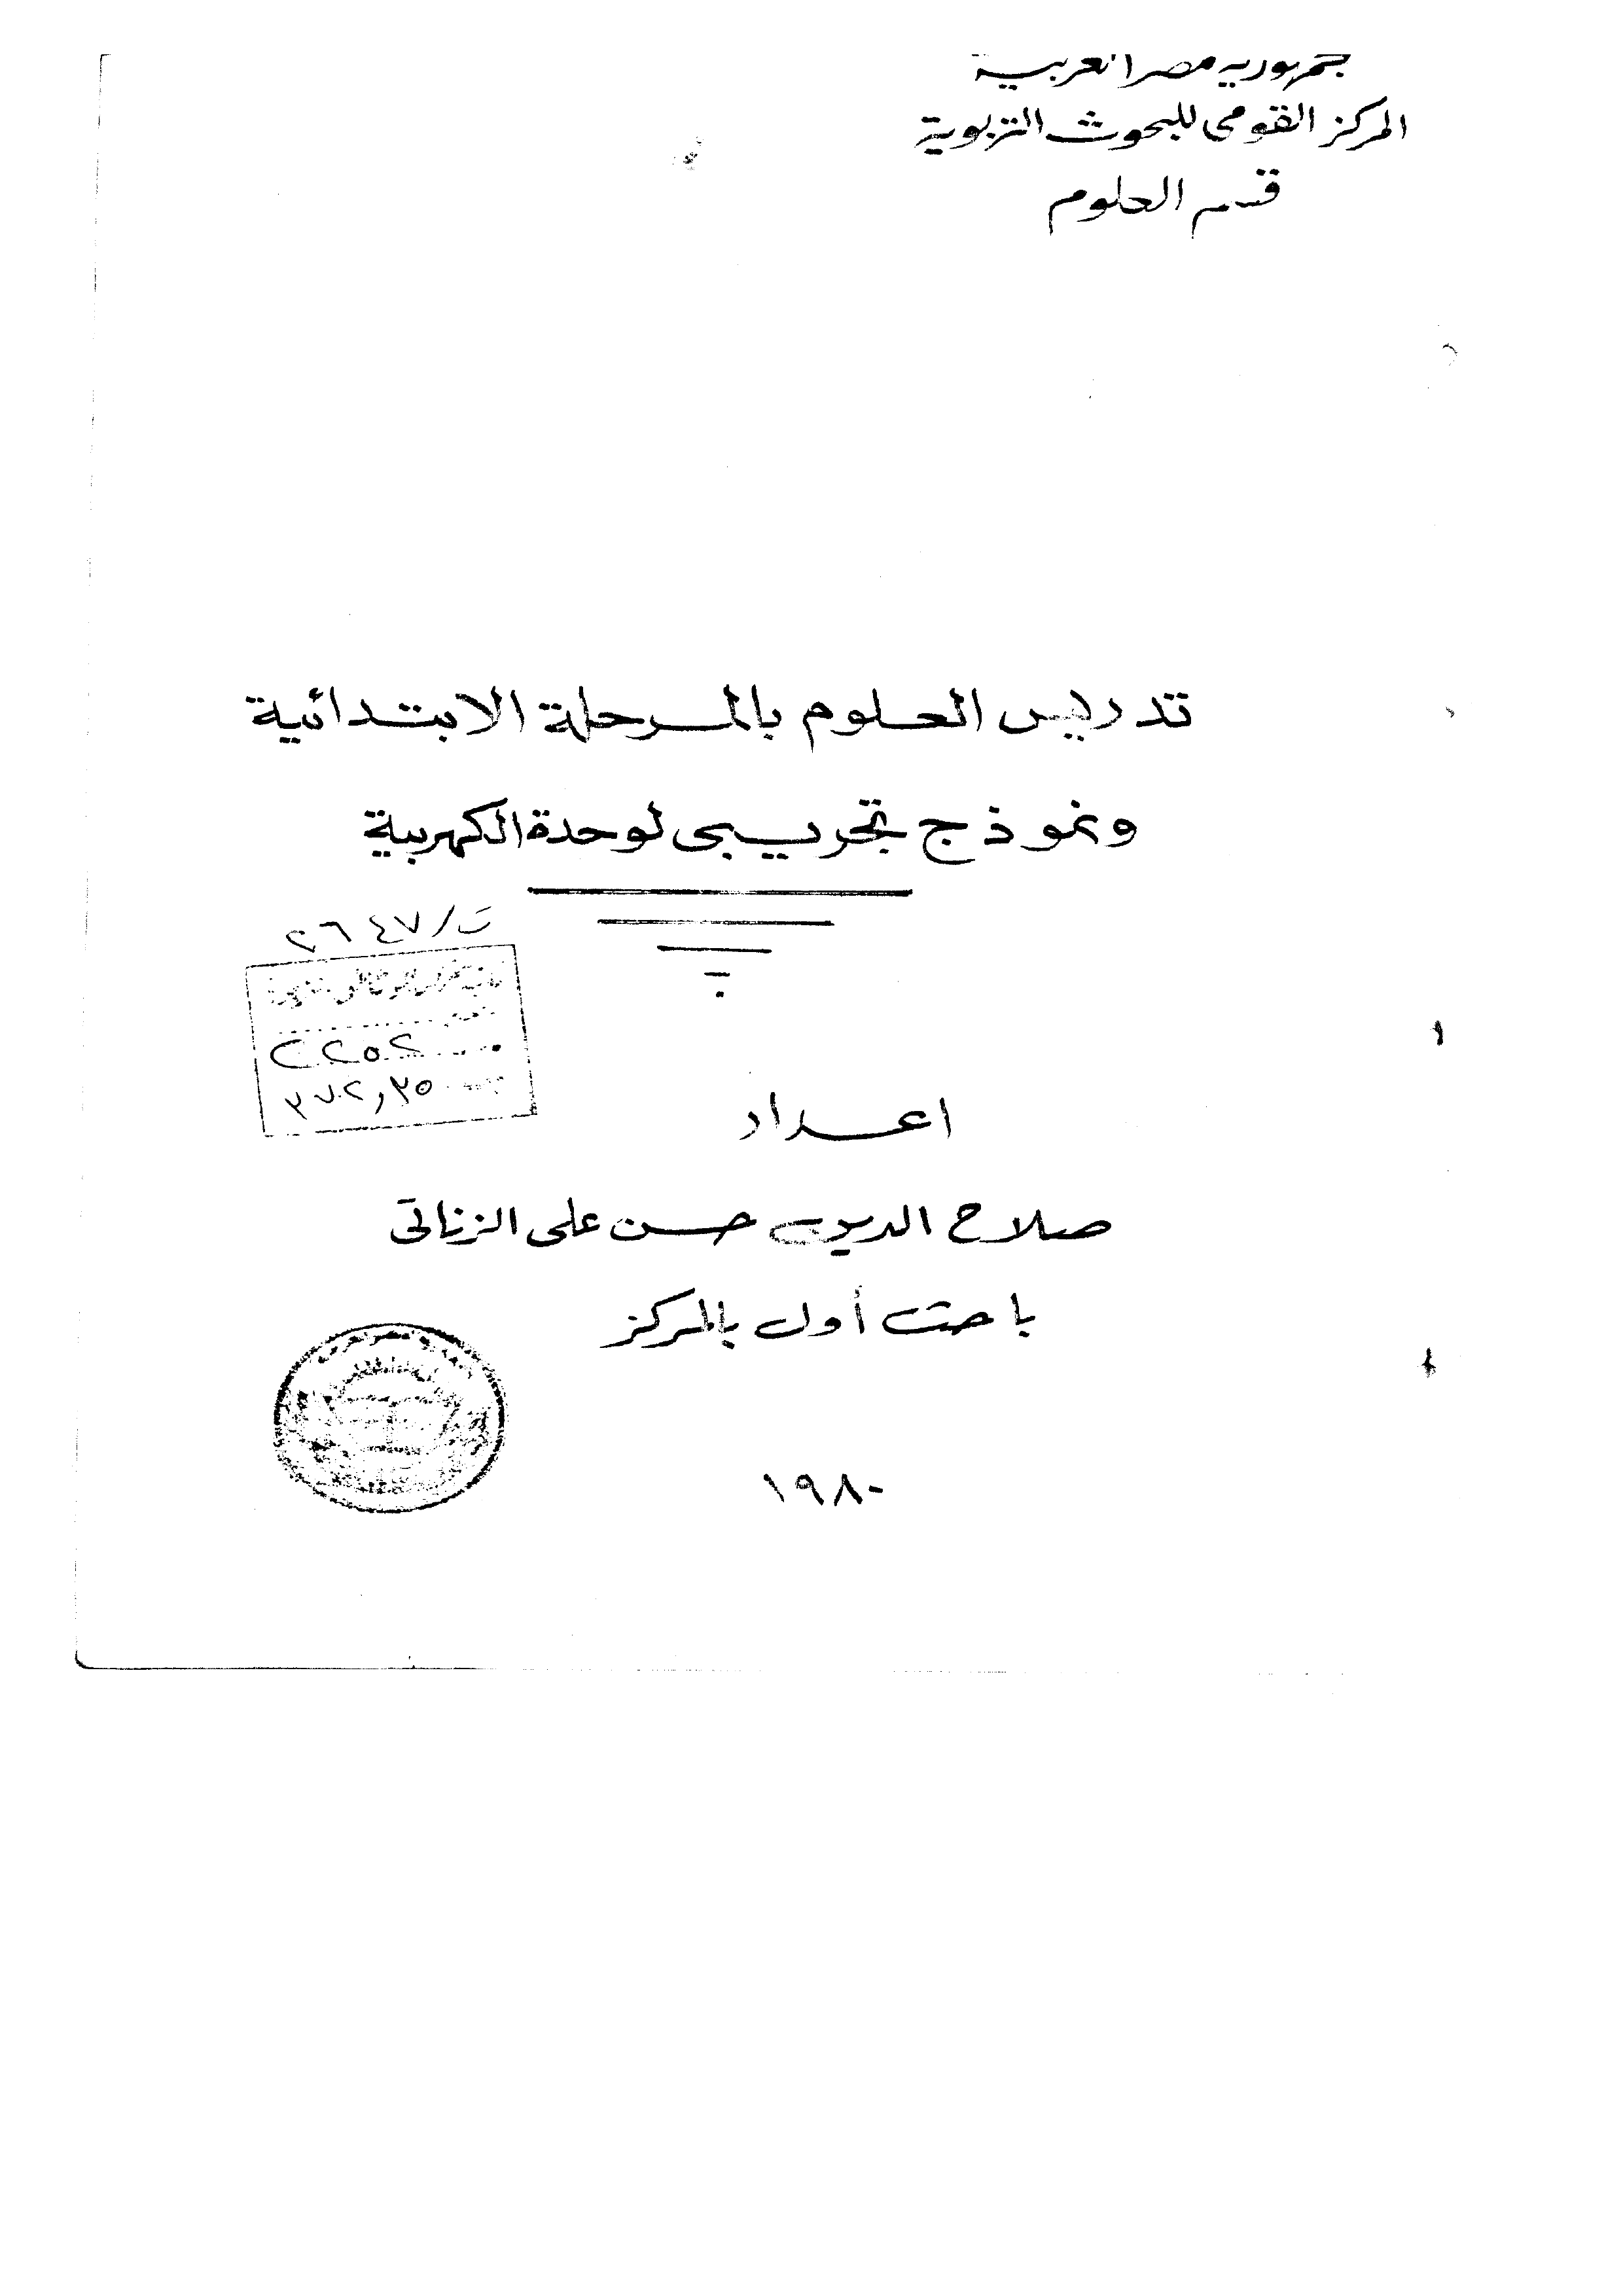 جمهورية مصر العربية
المركز القومى للبحوث التربوية
قسم العلوم
تدريس العلوم بالمرحلة الابتدائية
ونموذج تجريبى لوحدة الكهربية
ت/٢٦٤٧
٢٢٥٢
٣٧٢,٣٥
اعداد
صلاح الدين حسن على الزناتى
باحث أول بالمركز
١٩٨٠